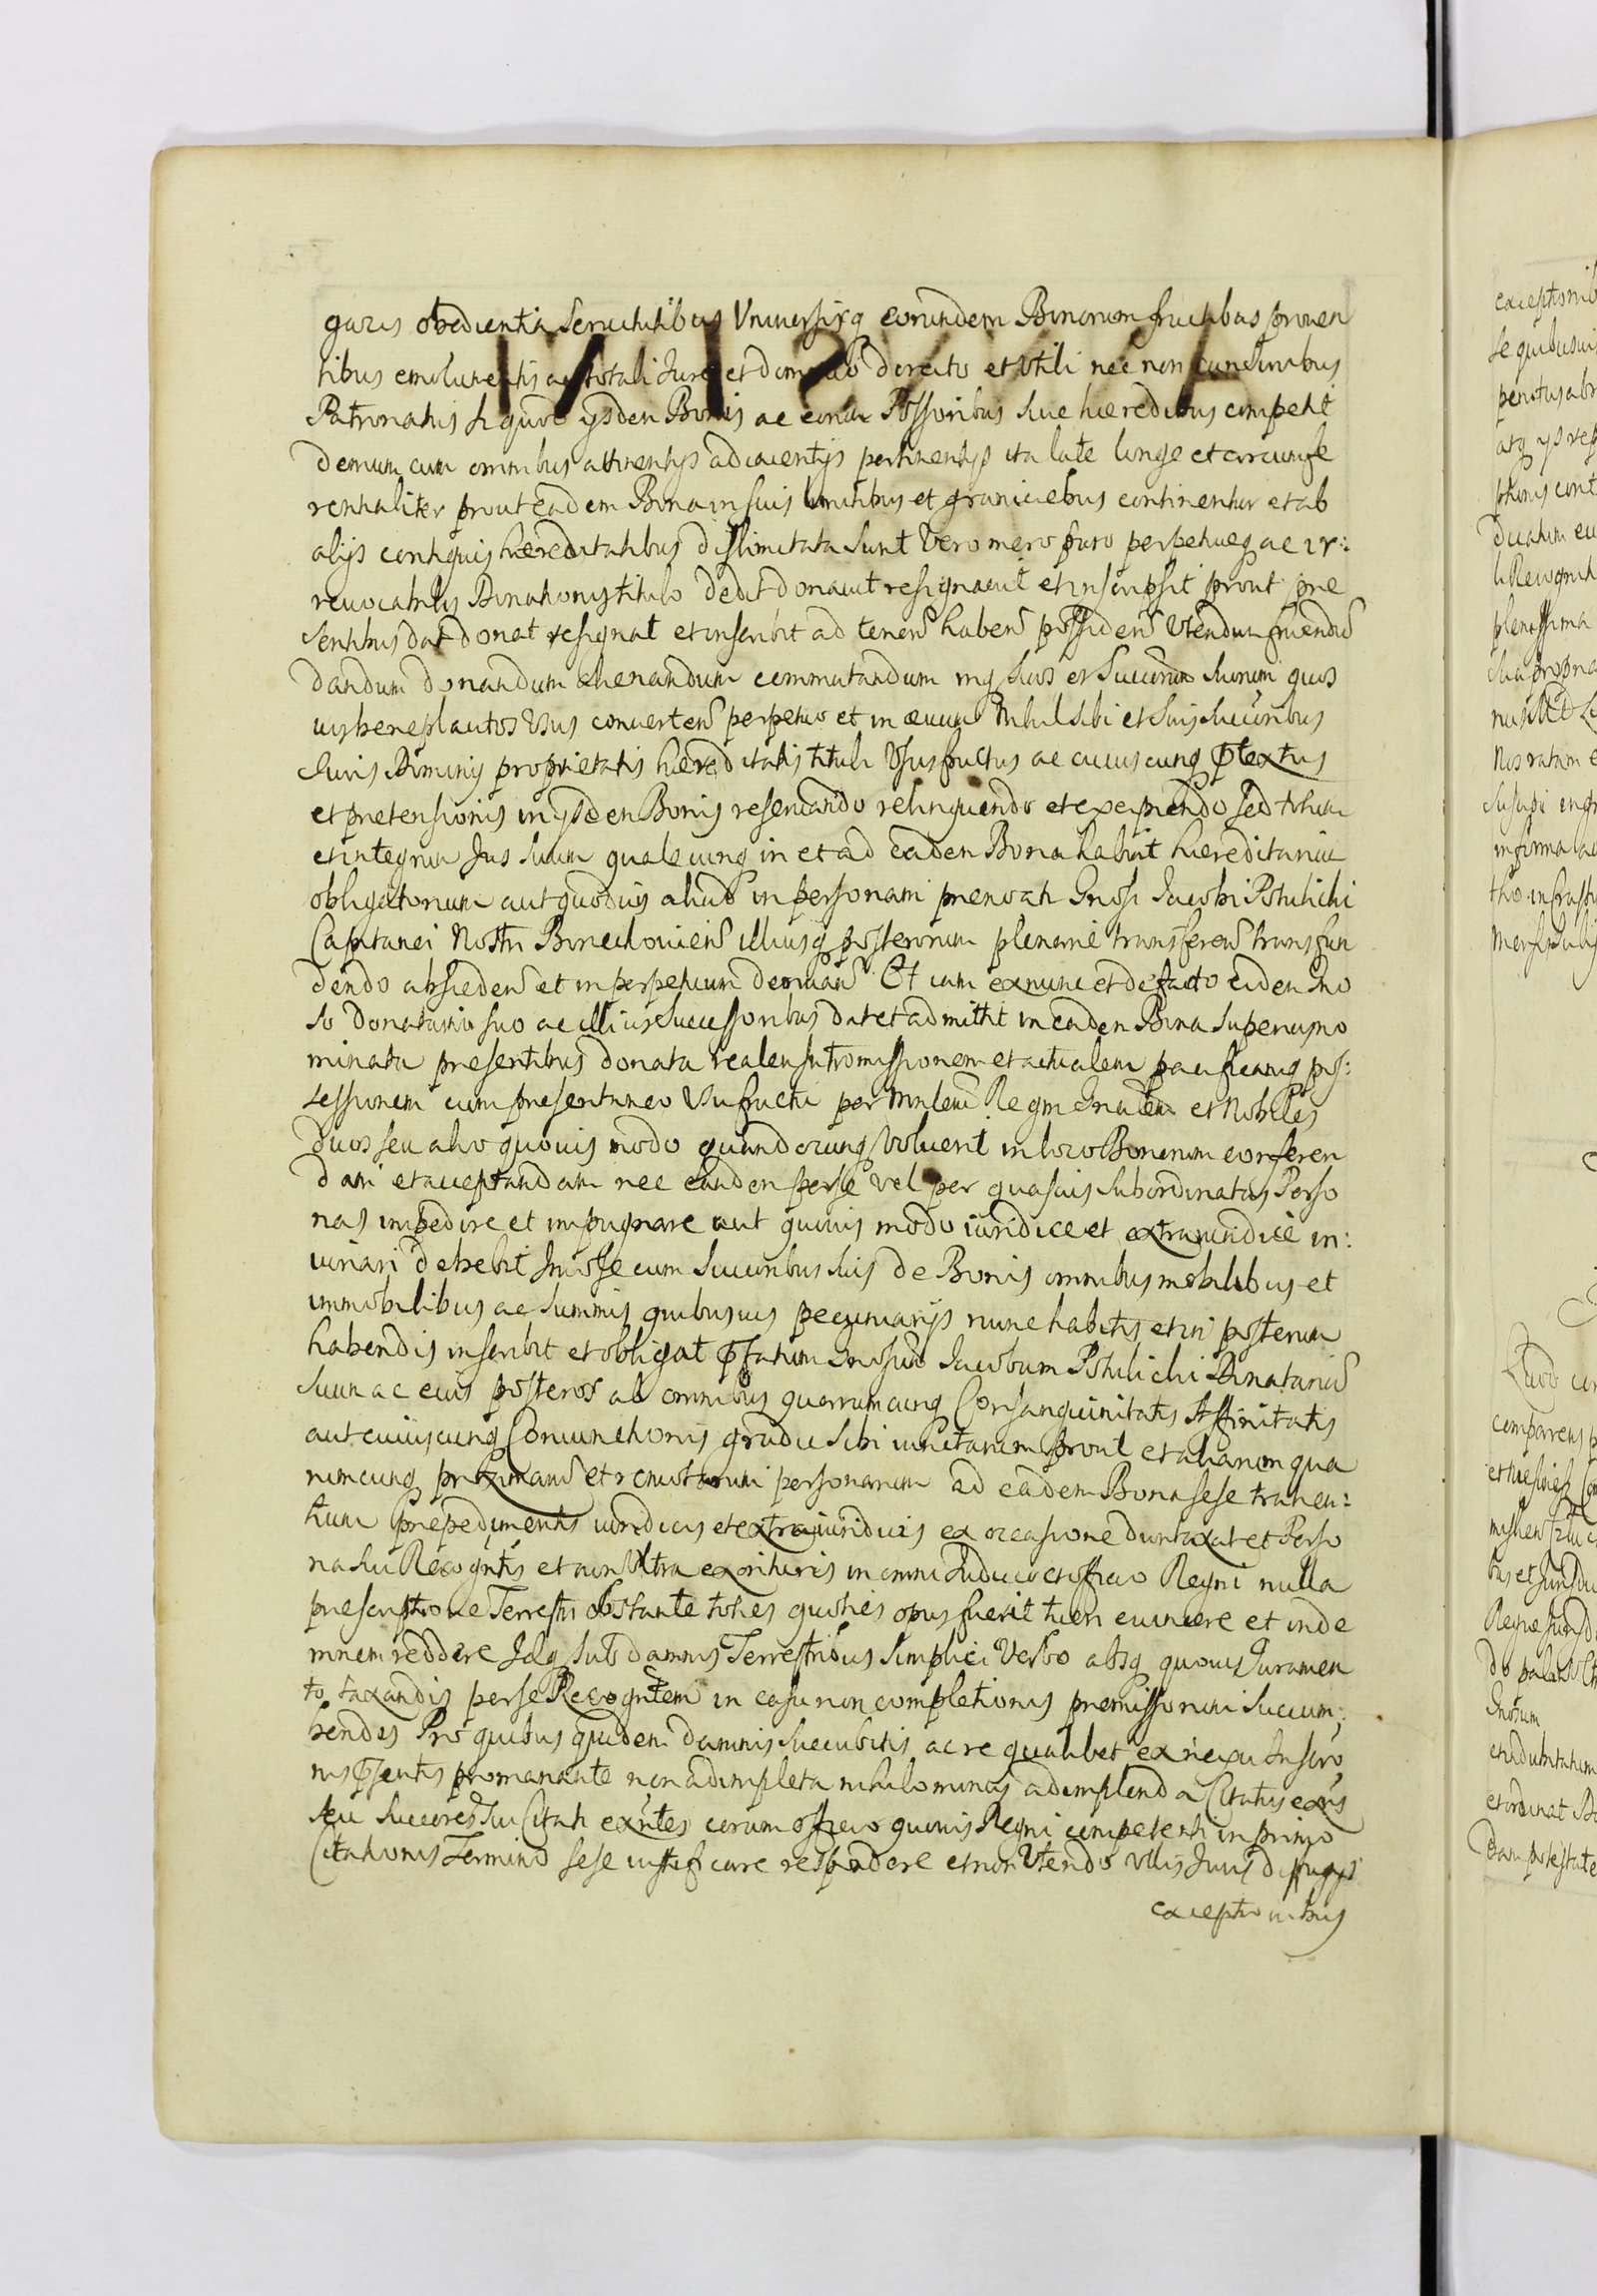 garis obedientia Servitutibus Universisq eorundem Bonorum fructibus proven
tibus emolumentis ac totali Jure et dominio directo et Utili nec non cum Juribus
Patronatus si quod ijsdem Bonis ac eorum Possoribus sive hæredibus competit
demum cum omnibus attinentijs adiacentijs pertinentijs ita late longe et circumfe
rentialiter prout eadem Bona in suis limitibus et graniciebus continentur et ab
alijs contiguis hæreditatibus dislimitata sunt Vero mero puro perpetuoq ac ir:
revocabilis Donationis titulo dedit donavit resignavit et inscripsit prout pre
sentibus dat donat resignat et inscribit ad tenen haben possiden Utendum fruendu
dandum donandum alienandum commutandum inq suos et Succorum suorum quos
vis beneplacitos Usus converten perpetuo et in ævum Nihil sibi et suis Succoribus
Juris Dominij proprietatis hæreditatis tituli Ususfructus ac cuiuscunq ptextus
et pretensionis in ijsdem Bonis reservando relinquendo et excipiendo sed totum
et integrum Jus suum qualecunq in et ad eadem Bona habuit hæreditarium
obligatorium aut quodvis aliud in personam prenoati Gnosi Jacobi Potulicki
Capitanei Nostri Borzechovien illiusq posterorum plenarie transferen transfun
dendo absceden et in perpetuum derivan Et iam ex nunc et de facto eidem Gno
so Donatario suo ac illius Successoribus dat et admittit in eadem Bona superius no
minata presentibus donata realem Intromissionem et actualem pacificamq pos:
sessionem cum presentaneo Usufructu per Mnlem Regni Gnalem et Nobiles
duos seu alio quovis modo quandocunq Voluerit in loco Bonorum conferen
dam et acceptandam nec eandem per se vel per quasvis subordinatas Perso
nas impedire et impugnare aut quovis modo iuridice et extraiuridice in:
iuriari debebit Imo se cum Succoribus suis de Bonis omnibus mobilibus et
immobilibus ac summis quibusvis pecuniarijs nunc habitis et in posterum
habendis inscribit et obligat pfatum Gnosum Jacobum Potulicki Donatarium
suum ac eius posteros ab omnibus quarumcunq Consanguinitatis Affinitatis
aut cuiuscunq Coniunctionis gradu sibi iunctarum prout et aliarum qua
rumcunq proximaru et remotarum personarum ad eadem Bona sese trahen:
tium prepedimentis iuridicis et extraiuridicis ex occasione duntaxat et Perso
na sui Recogntis et non Ultra exorituris in omni Judicio et officio Regni nulla
prescriptione Terrestri obstante toties quoties opus fuerit tueri evincere et inde
mnem reddere Idq sub damnis Terrestribus simplici Verbo absq quovis Juramen
to taxandis per se Recogntem in casu non completionis premissorum succum:
bendis Pro quibus quidem damnis succubitis ac re qualibet ex nexu Inscrip
nis psentis promanante non adimpleta nihilominus adimplenda Citatus exns
seu Succores sui Citati exntes coram officio quovis Regni competenti in primo
Citationis Termino sese iustificare respondere et non Utendo ullis Juris diffugijs
exceptionibus